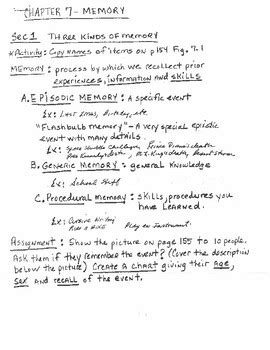 CHAPTER 7 - MEMORY
SEC 1 THREE KINDS OF MEMORY
*Activity: Copy names of items on p154 Fig. 7.1
MEMORY: process by which we recollect prior
experiences, information and skills
A. EPISODIC MEMORY: A specific event
Ex: Last Xmas, Birthday, etc.
"Flashbulb memory" - A very special episodic
event with many details
Ex: Space shuttle Challenger, Princess Diana's death
death, M.L. King's death,
B. Generic Memory: general knowledge
Ex: School stuff
C. Procedural memory: skills, procedures you
have learned.
Ex: Cursive writing Play an Instrument
Ride a Bike
Assignment: Show the picture on page 155 to 10 people.
Ask them if they remember the event? (Cover the description
below the picture) Create a chart giving their age,
sex and recall of the event.